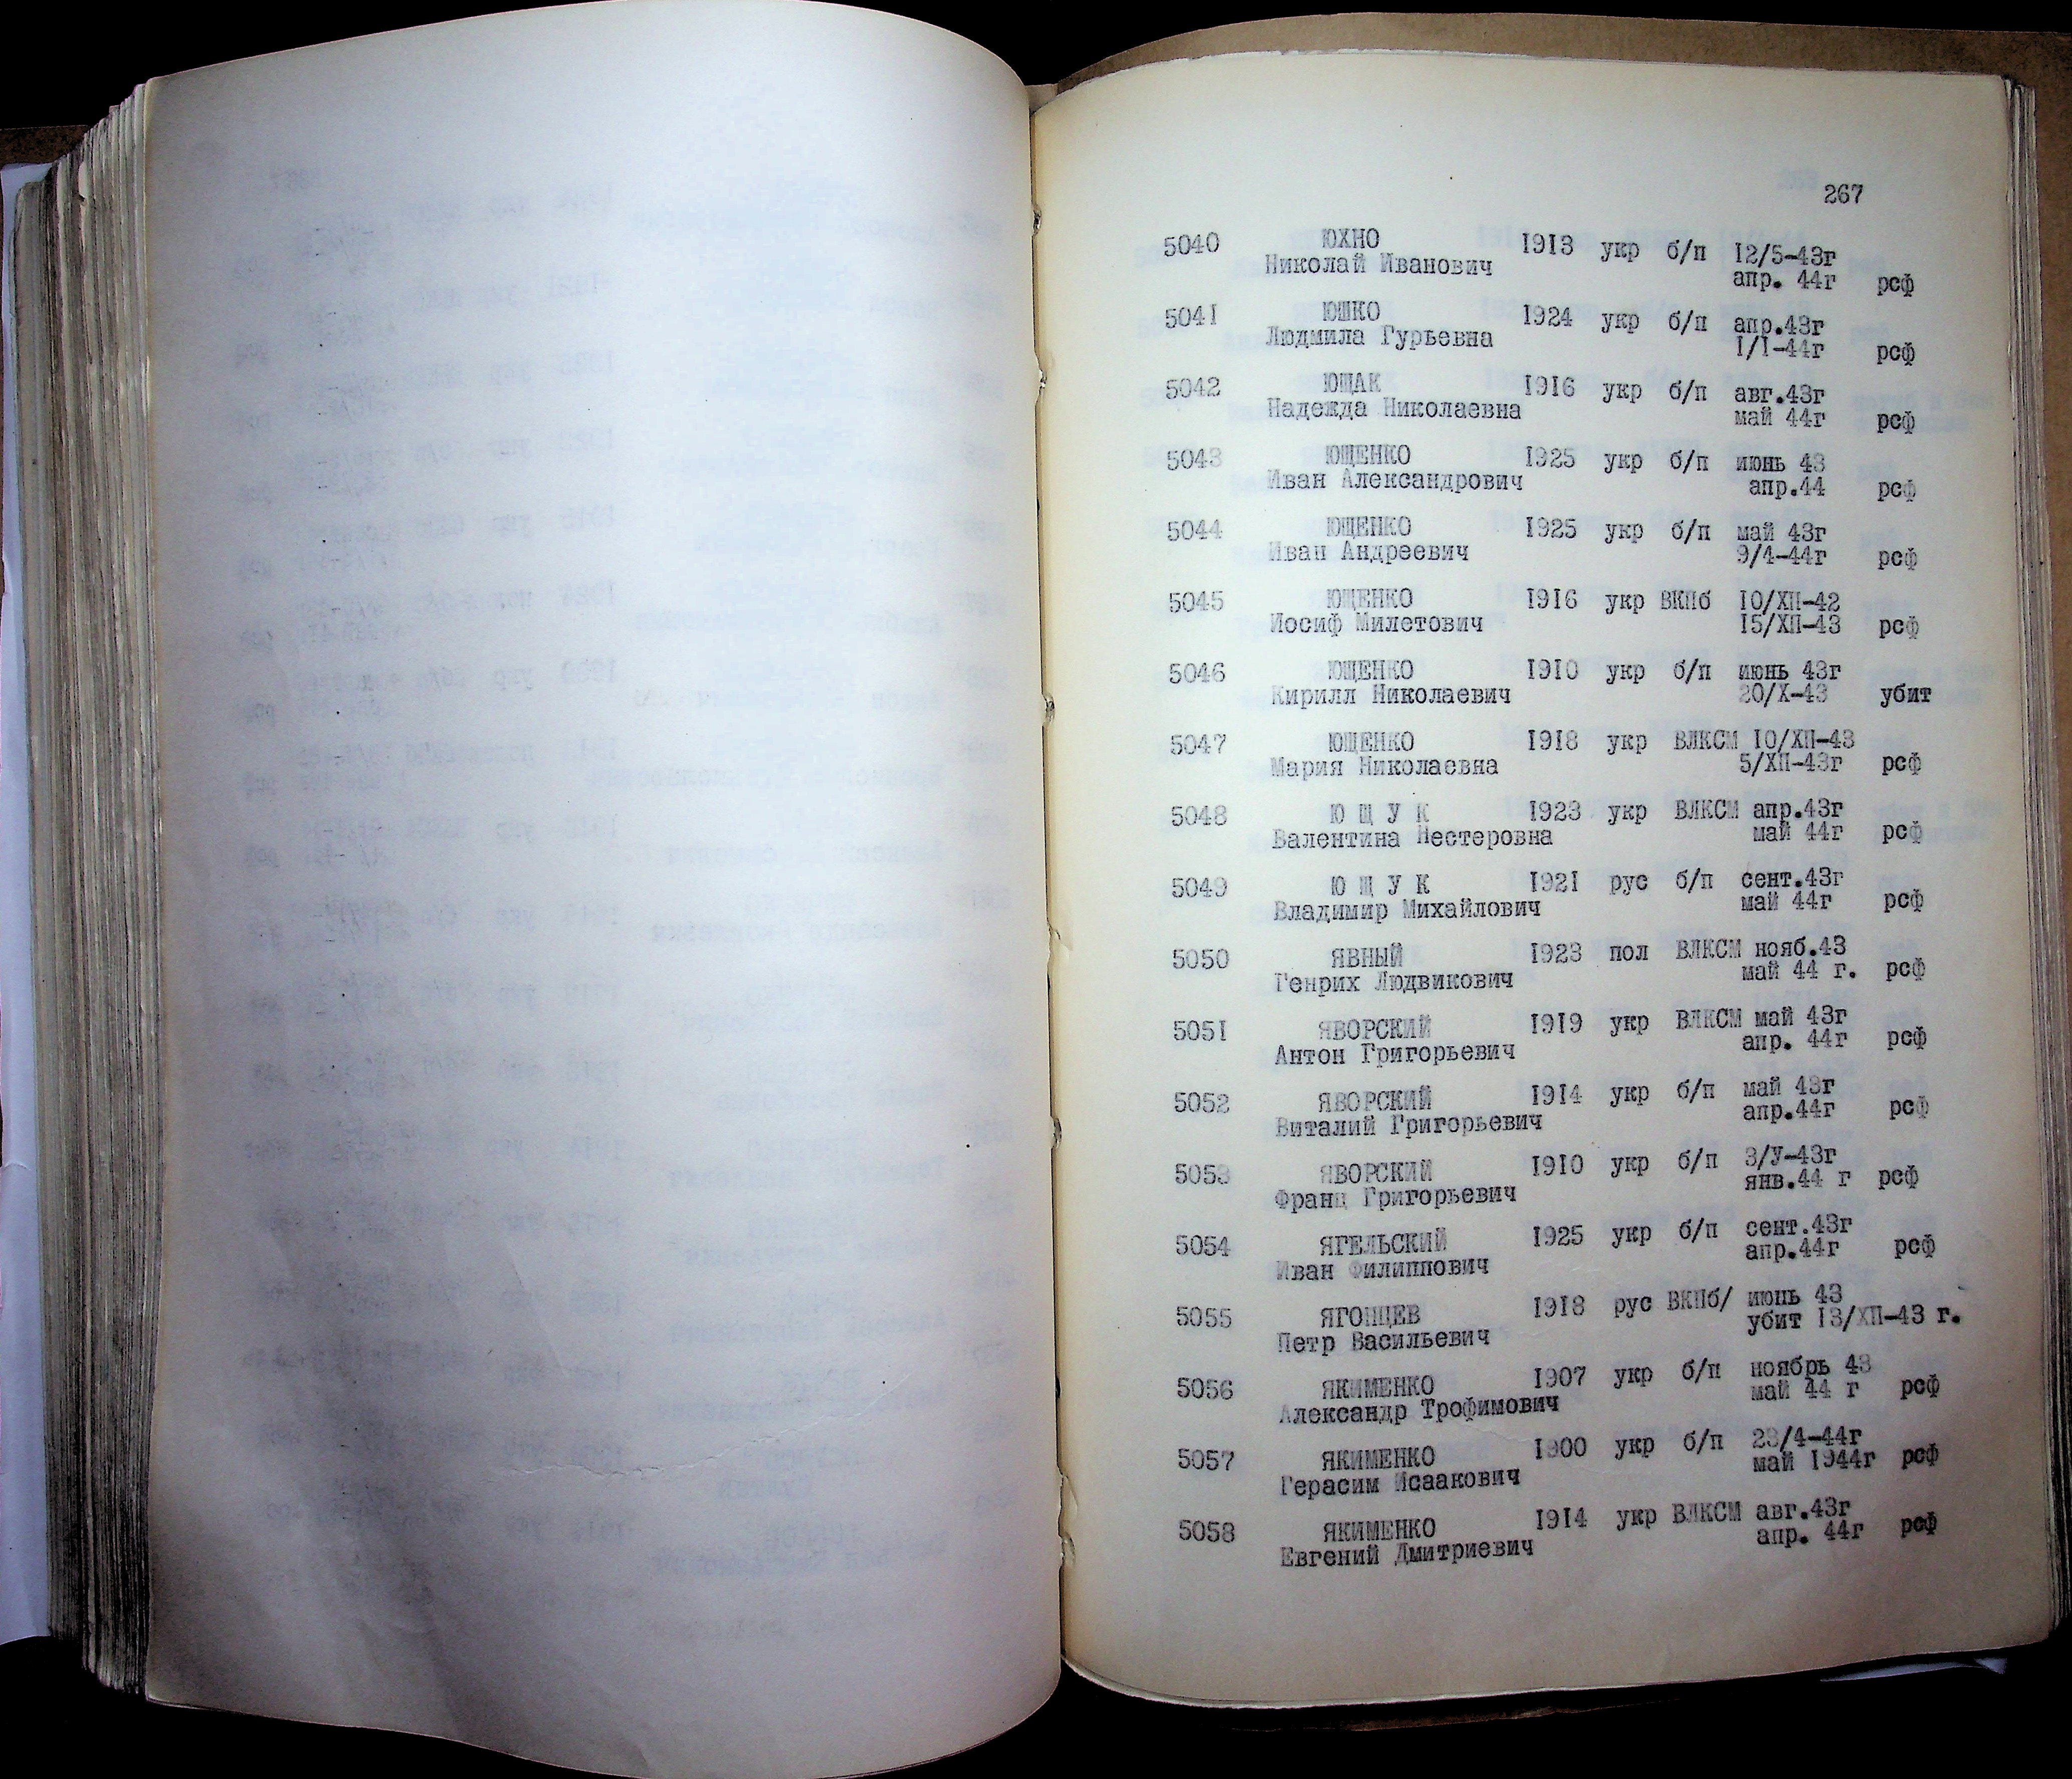 267
5040 ЮХНО 1913 укр б/п 12/5-43г
Николай Иванович апр. 44г рсф
5041 ЮШКО 1924 укр б/п апр.43г
Людмила Гурьевна 1/1-44г рсф
5042 ЮЩАК 1916 укр б/п авг.43г
Надежда Николаевна май 44г рсф
5043 ЮЩЕНКО 1925 укр б/п июнь 43
Иван Александрович апр.44 рсф
5044 ЮЩЕНКО 1925 укр б/п май 43г
Иван Андреевич 9/4-44г рсф
5045 ЮЩЕНКО 1916 укр ВКПб 10/ХП-42
Иосиф Милетович 15/ХП-43 рсф
5046 ЮЩЕНКО 1910 укр б/п июнь 43г
Кирилл Николаевич 20/Х-43 убит
5047 ЮЩЕНКО 1918 укр ВЛКСМ 10/ХП-43
Мария Николаевна 5/ХП-43г рсф
5048 Ю Щ У К 1923 укр ВЛКСМ апр.43г
Валентина Нестеровна май 44г рсф
5049 Ю Щ У К 1921 рус б/п сент.43г
Владимир Михайлович май 44г рсф
5050 ЯВНЫЙ 1923 пол ВЛКСМ нояб.43
Генрих Людвикович май 44 г. рсф
5051 ЯВОРСКИЙ 1919 укр ВЛКСМ май 43г
Антон Григорьевич апр. 44г рсф
5052 ЯВОРСКИЙ 1914 укр б/п май 43г
Виталий Григорьевич апр.44г рсф
5053 ЯВОРСКИЙ 1910 укр б/п 3/У-43г
Франц Григорьевич янв.44 г рсф
5054 ЯГЕЛЬСКИЙ 1925 укр б/п сент.43г
Иван Филиппович апр.44г рсф
5055 ЯГОНЦЕВ 1918 рус ВКПб/ июнь 43
Петр Васильевич убит 13/ХП-43 г.
5056 ЯКИМЕНКО 1907 укр б/п ноябрь 43
Александр Трофимович май 44 г рсф
5057 ЯКИМЕНКО 1900 укр б/п 23/4-44г
Герасим Исаакович май 1944г рсф
5058 ЯКИМЕНКО 1914 укр ВЛКСМ авг.43г
Евгений Дмитриевич апр. 44г рсф